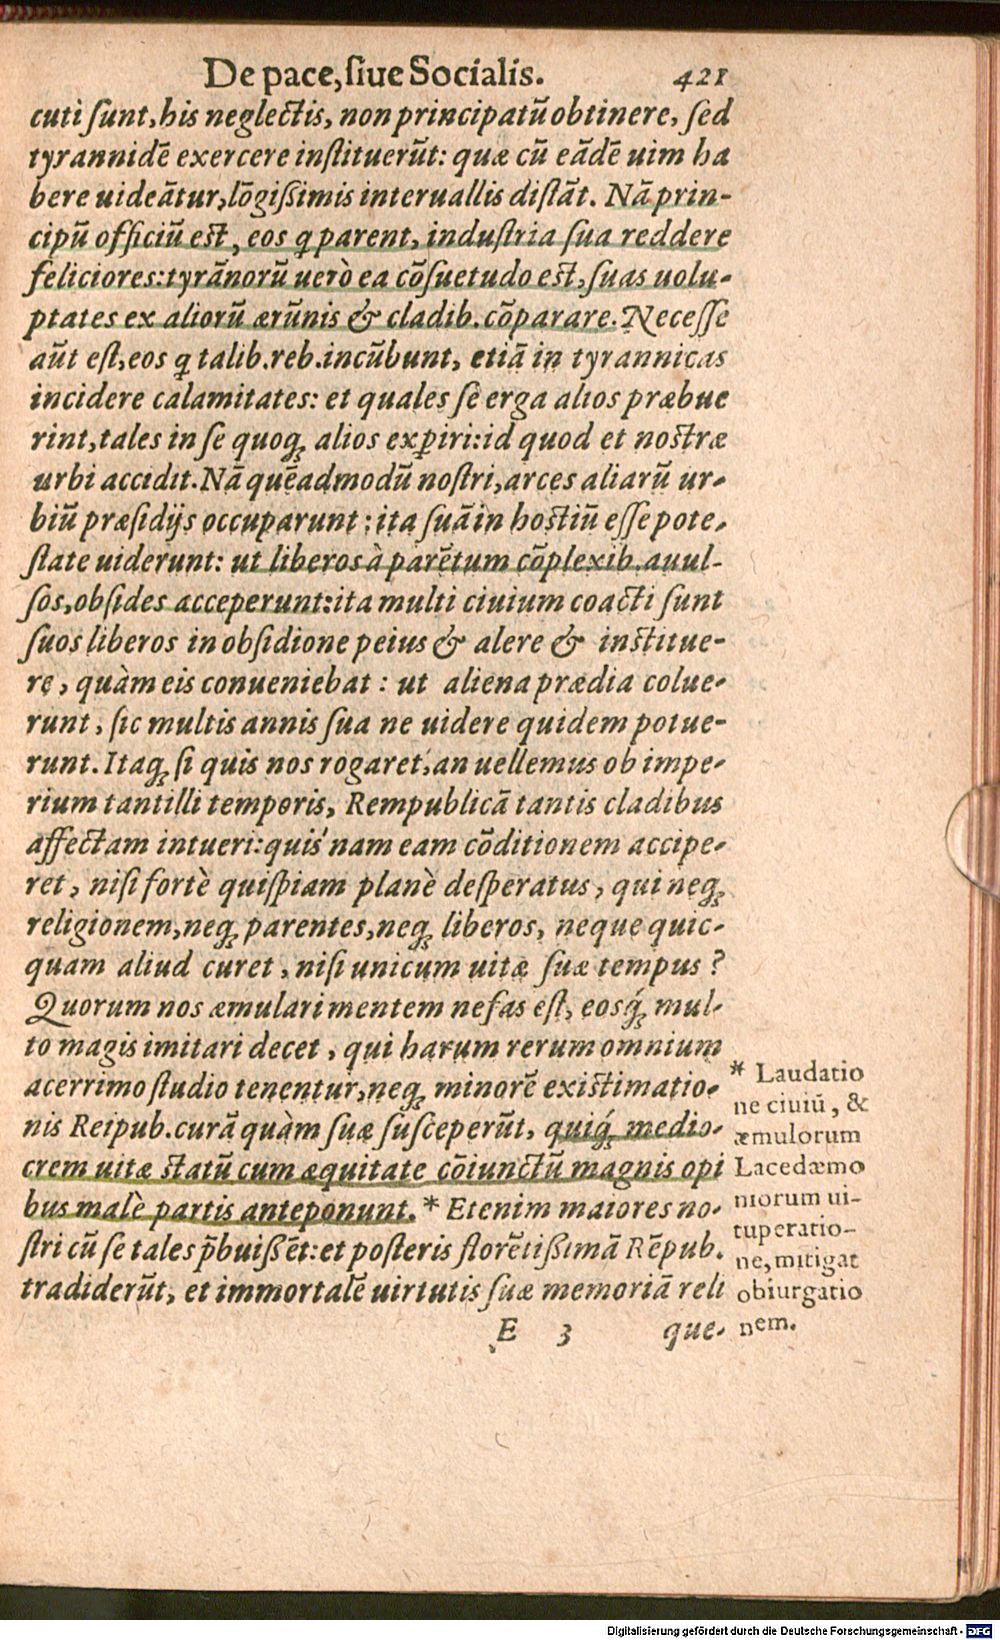 De pace, ſiue Socialis. 421
cuti ſunt, his neglectis, non principatū obtinere, ſed
tyrannidē exercere inſtituerūt: quæ cū eādē uim ha
bere uideātur, lōgiſsimis interuallis diſtāt. Nā prin-
cipū officiū est, eos q̃ parent, induſtria ſua reddere
feliciores: tyrānorū uerò ea cōſuetudo est, ſuas uolu-
ptates ex aliorū ærūnis & cladib. cōparare. Neceſſe
aūt eſt, eos q̃ talib. reb. incūbunt, etiā in tyrannicas
incidere calamitates: et quales ſe erga alios præbue
rint, tales in ſe quoq; alios exꝑiri: id quod et nostræ
urbi accidit. Nā quēadmodū noſtri, arces aliarū ur-
biū præſidijs occuparunt: ita ſuā in hoſtiū eſſe pote-
ſtate uiderunt: ut liberos à parētum cōplexib. auul-
ſos, obſides acceperunt: ita multi ciuium coacti ſunt
ſuos liberos in obſidione peius & alere & institue-
re, quàm eis conueniebat: ut aliena prædia colue-
runt, ſic multis annis ſua ne uidere quidem potue-
runt. Itaq; ſi quis nos rogaret, an uellemus ob impe-
rium tantilli temporis, Rempublicā tantis cladibus
affectam intueri: quis nam eam cōditionem accipe-
ret, niſi fortè quiſpiam planè deſperatus, qui neq;
religionem, neq; parentes, neq; liberos, neque quic-
quam aliud curet, niſi unicum uitæ ſuæ tempus?
Quorum nos æmulari mentem nefas eſt, eosq́; mul-
to magis imitari decet, qui harum rerum omnium
acerrimo ſtudio tenentur, neq; minorē existimatio-
nis Reipub. curā quàm ſuæ ſuſceperūt, quiq́; medio-
crem uitæ statū cum æquitate cōiunctū magnis opi
bus malè partis anteponunt. * Etenim maiores no-
ſtri cū ſe tales p̄buiſſēt: et poſteris florētiſsimā Rēpub.
tradiderūt, et immortalē uirtutis ſuæ memoriā reli
E 3 que-
* Laudatio
ne ciuiū, &
æmulorum
Lacedæmo
niorum ui-
tuperatio-
ne, mitigat
obiurgatio
nem.
Digitalisierung gefördert durch die Deutsche Forschungsgemeinschaft - DFG